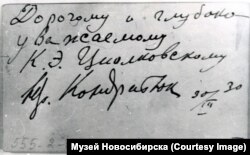 Дорогому и глубоко
уважаемому
К. Э. Циолковскому
Юр. Кондратюк 30/IV 30
555. 2
Музей Новосибирска (Courtesy Image)